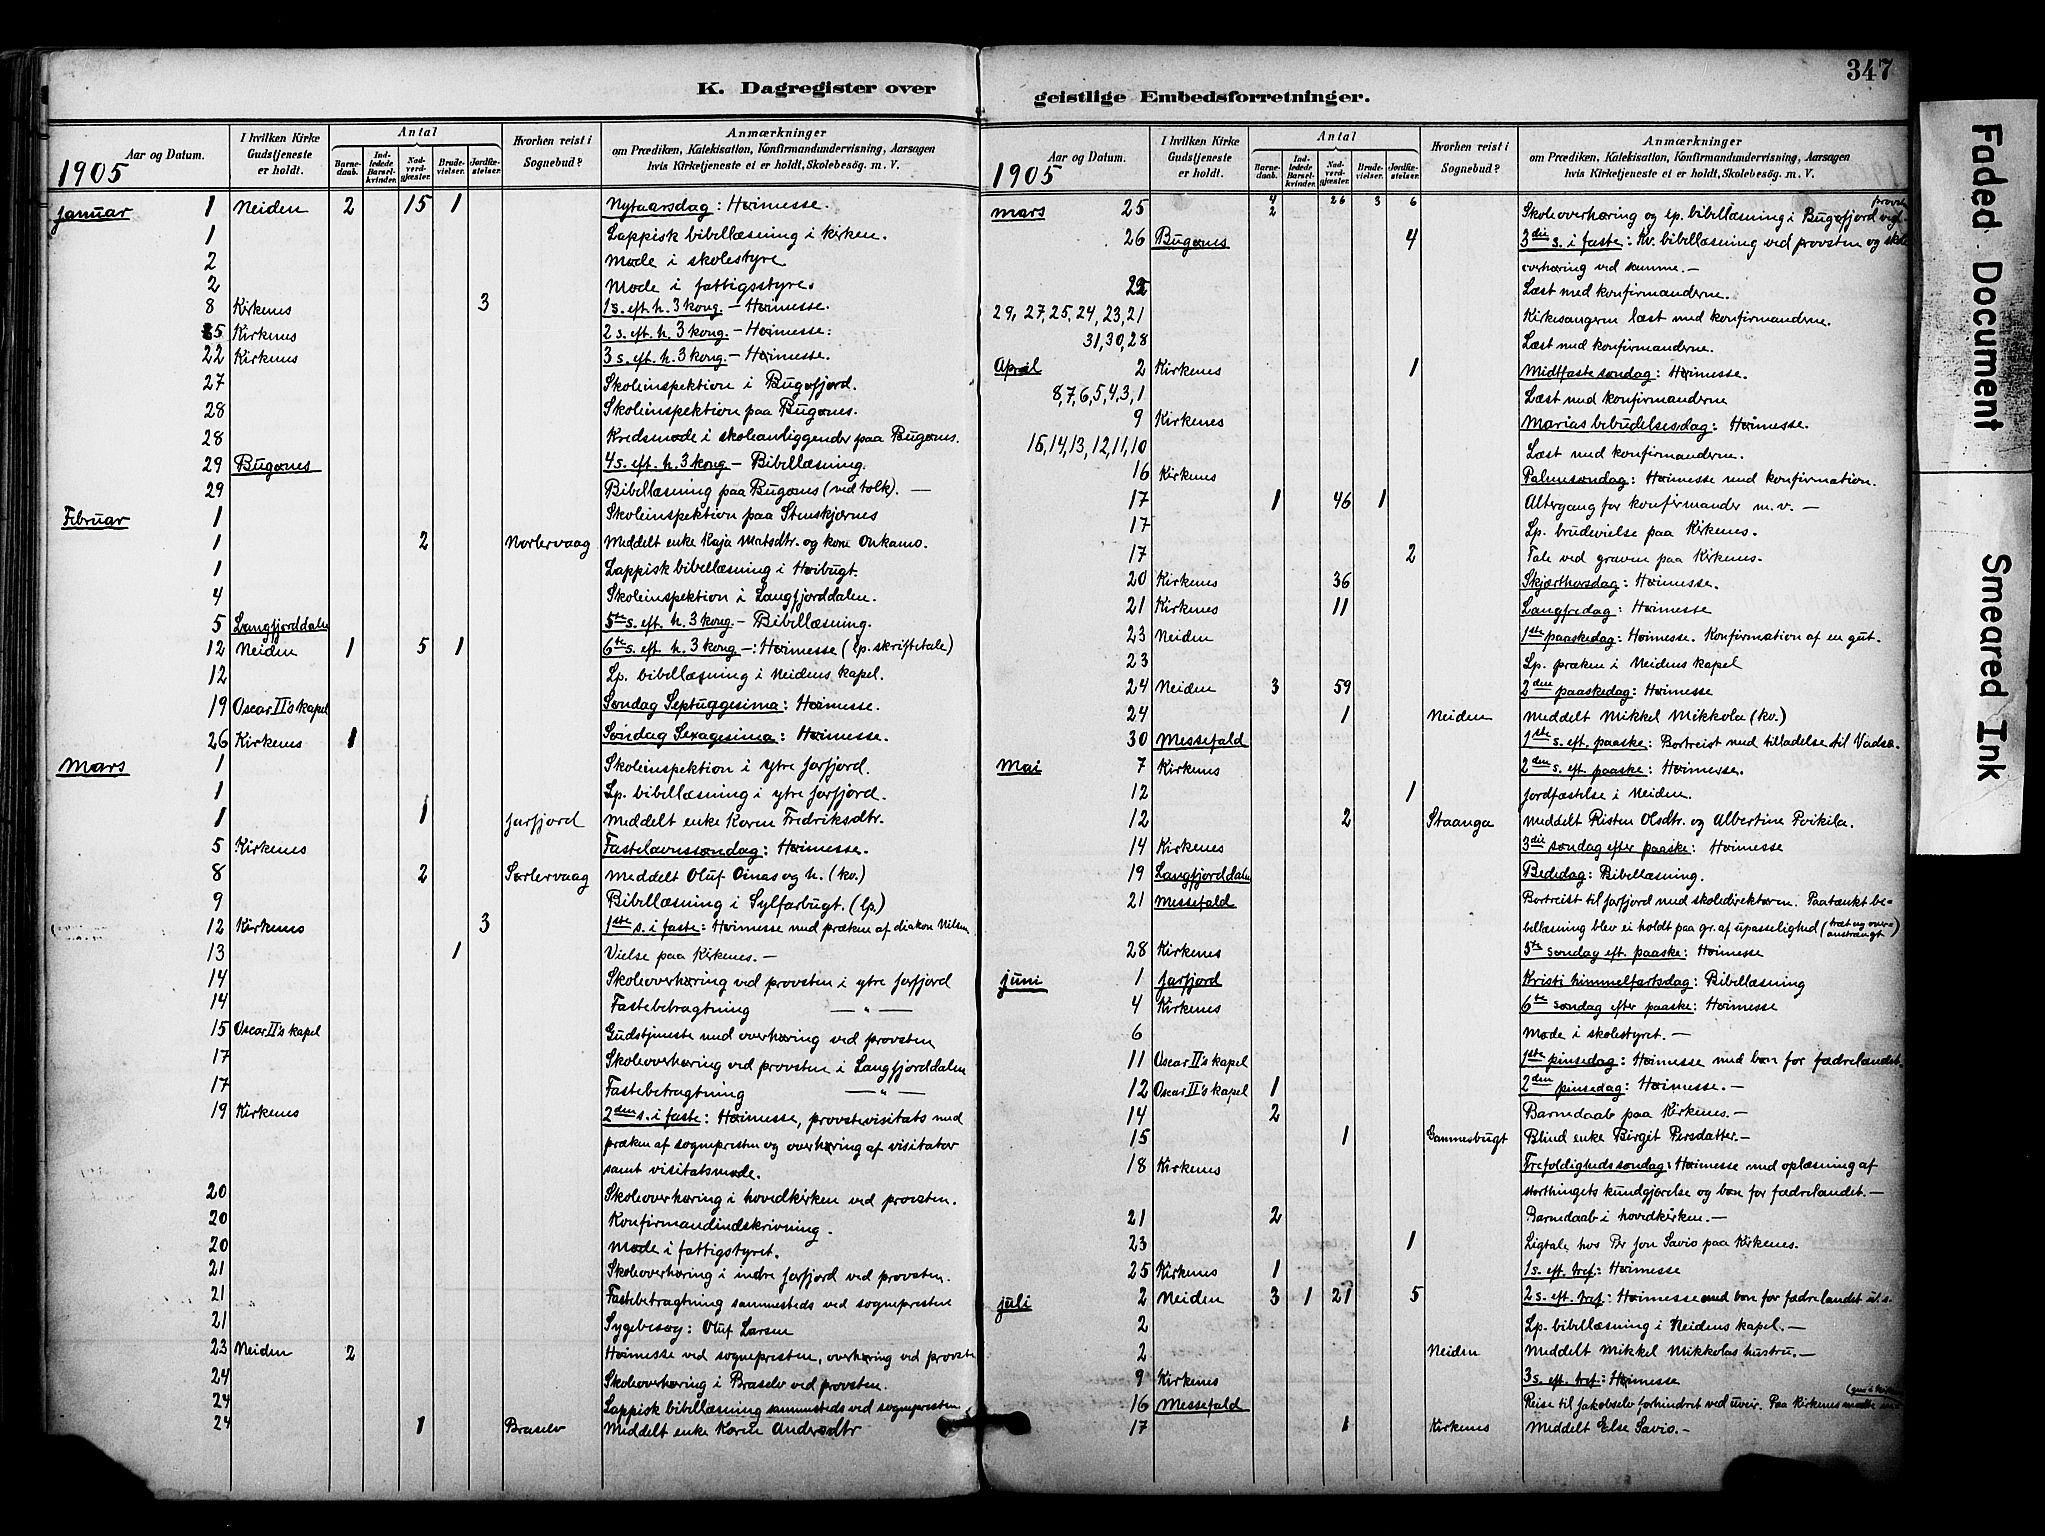 347
K. Dagregister over
geistlige Embedsforretninger.
Faded Document
Smeared Ink
Aar og Datum.
1905
I hvilken Kirke Gudstjeneste er holdt.
Antal
Barnedaab.
Indledede Barselkvinder.
Nadverdgjæster.
Brudevielser.
Jordfæstelser.
Hvorhen reist i Sognebud?
Anmærkninger
om Prædiken, Katekisation, Konfirmandundervisning, Aarsagen
hvis Kirketjeneste ei er holdt, Skolebesög. m. V.
Januar 1 Neiden 2 15 1 Nytaarsdag: Høimesse.
1 Lappisk bibellæsning i kirken.
2 Møde i skolestyre
2 Møde i fattigstyre.
8 Kirkenes 3 1 s. eft. h. 3 kong. – Høimesse.
15 Kirkenes 2 s. eft. h. 3 kong. – Høimesse.
22 Kirkenes 3 s. eft. h. 3 kong. – Høimesse.
27 Skoleinspektion i Bugøfjord.
28 Skoleinspektion paa Bugønes.
28 Kredsmøde i skoleanliggender paa Bugønes.
29 Bugønes 4 s. eft. h. 3 kong – Bibellæsning.
29 Bibellæsning paa Bugønes (ved tolk). —
Februar 1 Skoleinspektion paa Stenskjærnes
1 2 Norlervaag Meddelt enke Kaja Matsdtr. og kone Onkamo.
1 Lappisk bibellæsning i Høibugt.
4 Skoleinspektion i Langfjorddalen.
5 Langfjorddalen 5te s. eft. h. 3 kong – Bibellæsning.
12 Neiden 1 5 1 6te s. eft h. 3 kong –: Høimesse (lp. skriftetale)
12 Lp. bibellæsning i Neidens kapel.
19 Oscar II's kapel Søndag Septuggesima: Høimesse.
26 Kirkenes 1 Søndag Sexagesima: Høimesse.
Mars 1 Skoleinspektion i ytre Jarfjord.
1 Lp. bibellæsning i ytre Jarfjord.
1 1 Jarfjord Meddelt enke Karen Fredriksdtr.
5 Kirkenes Fastelavnssøndag: Høimesse.
8 2 Sørlervaag Meddelt Oluf Oinas og h. (kv.)
9 Bibellæsning i Sylfarbugt. (lp.)
12 Kirkenes 3 1ste s. i faste: Høimesse med præken af diakon Nilsen
13 1 Vielse paa Kirkenes. —
14 Skoleoverhøring ved provsten i ytre Jarfjord
14 Fastebetragtning — „ —
15 Oscar II's kapel Gudstjeneste med overhøring ved provsten
17 Skoleoverhøring ved provsten i Langfjorddalen
17 Fastebetragtning — „ —
19 Kirkenes 2den s. i faste: Høimesse, provstevisitats med
præken af sognepresten og overhøring af visitator
samt visitatsmøde.
20 Skoleoverhøring i hovedkirken ved provsten.
20 Konfirmandindskrivning.
20 Møde i fattigstyret.
21 Skoleoverhøring i indre Jarfjord ved provsten.
21 Fastebetragtning sammesteds ved sognepresten
21 Sygebesøg: Oluf Larsen
23 Neiden 2 Høimesse ved sognepresten, overhøring ved provsten
24 Skoleoverhøring i Braselv ved provsten.
24 Lappisk bibellæsning sammesteds ved sognepresten
24 1 Braselv Meddelt enke Karen Andersdtr
Aar og Datum.
1905
I hvilken Kirke Gudstjeneste er holdt.
Antal
Barnedaab.
Indledede Barselkvinder.
Nadverdgjæster.
Brudevielser.
Jordfæstelser.
Hvorhen reist i Sognebud?
Anmærkninger
om Prædiken, Katekisation, Konfirmandundervisning, Aarsagen
hvis Kirketjeneste ei er holdt, Skolebesög. m. V.
4 2 26 3 6
Mars 25 Skoleoverhøring og lp. bibellæsning i Bugøfjord ved provsten
26 Bugønes 4 3die s. i faste: Kv. bibellæsning ved provsten og skole
overhøring ved samme. —
22 Læst med konfirmanderne.
29, 27, 25, 24, 23, 21 Kirkesangeren læst med konfirmanderne.
31, 30, 28 Læst med konfirmanderne.
April 2 Kirkenes 1 Midtfastesøndag: Høimesse.
8, 7, 6, 5, 4, 3, 1 Læst med konfirmanderne
9 Kirkenes Marias bebudelsesdag: Høimesse.
15, 14, 13, 12, 11, 10 Læst med konfirmanderne.
16 Kirkenes Palmesøndag: Høimesse med konfirmation.
17 1 46 1 Altergang for konfirmander m. v. —
17 Lp. brudevielse paa Kirkenes.
17 2 Tale ved graven paa Kirkenes.
20 Kirkenes 36 Skjærthorsdag: Høimesse.
21 Kirkenes 11 Langfredag: Høimesse
23 Neiden 1ste paaskedag: Høimesse. Konfirmation af en gut.
23 Lp. præken i Neidens kapel
24 Neiden 3 59 2den paaskedag: Høimesse
24 1 Neiden Meddelt Mikkel Mikkola (kv.)
30 Messefald 1ste s. eft. paaske: Bortreist med tilladelse til Vadsø.
Mai 7 Kirkenes 2den s. eft. paaske: Høimesse.
12 1 Jordfæstelse i Neiden.
12 2 Staanga Meddelt Risten Olsdtr. og Albertine Poikila.
14 Kirkenes 3die søndag efter paaske: Høimesse
19 Langfjorddalen Bededag: Bibellæsning.
21 Messefald Bortreist til Jarfjord med skoledirektøren. Paatænkt bi-
bellæsning blev ei holdt paa gr. af upasselighed (træt og overanstrængt)
28 Kirkenes 5te søndag eft. paaske: Høimesse
Juni 1 Jarfjord Kristi himmelfartsdag: Bibellæsning
4 Kirkenes 6te søndag efter paaske: Høimesse
6 Møde i skolestyret. —
11 Oscar II's kapel 1ste pinsedag: Høimesse med bøn for fædrelandet.
12 Oscar II's kapel 1 2den pinsedag: Høimesse. —
14 2 Barnedaab paa Kirkenes. —
15 1 Gammesbugt Blind enke Birgit Persdatter. —
18 Kirkenes Trefoldighedssøndag: Høimesse med oplæsning af
storthingets kundgjørelse og bøn for fædrelandet. —
21 2 Barnedaab i hovedkirken. —
23 1 Ligtale hos Per Jon Savio paa Kirkenes.
25 Kirkenes 1 1 s. eft. tref: Høimesse
Juli 2 Neiden 3 1 21 5 2 s. eft. tref: Høimesse med bøn for fædrelandet
2 Lp. bibellæsning i Neidens kapel. —
2 Neiden Meddelt Mikkel Mikkolas hustru. —
9 Kirkenes 3 s. eft. tref: Høimesse
16 Messefald Reise til Jakobselv forhindret ved uveir. Paa Kirkenes
17 1 Kirkenes Meddelt Else Savio. —